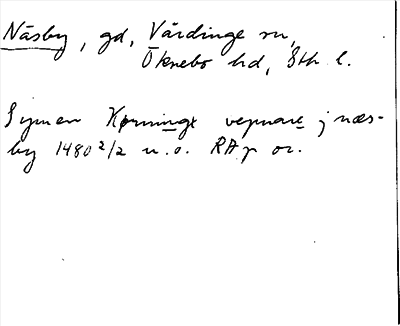 Näsby, gd, Vårdinge sn,
Öknebo hd, Sth l.
Symen Kørningx vepnare j næs-
by 1480 2/2 u.o. RAp or.